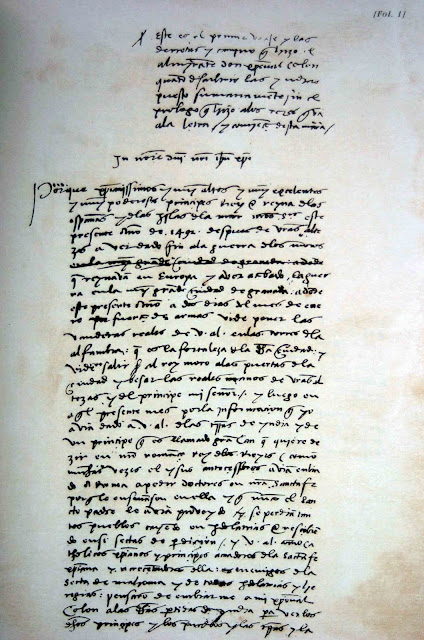 [Fol. 1]
Este es el primer viaje y las
derrotas y camino q̃ hizo el
almirãte don xpoual Colon
quando descubrio las yndias
puesto sumariamẽte sin el
prologo q̃ hizo a los reyes q̃ va
a la letra y comiença desta manera
In noĩe dñi nri ihu xpi
Porque xpianissimos y muy altos y muy excelentes
y muy poderosos principes Rey e Reyna de las
españas y de las yslas de la mar nros Sres este
presente año de 1492 despues de vras alte
zas aver dado fin a la guerra de los moros
en la muy grande ciudad de granada: adonde
que reynavan en Europa y aver acabado la guer
ra en la muy grãde ciudad de granada: adonde
este presente año a dos dias del mes de ene
ro por fuerça de armas vide poner las
vanderas reales de v. al. en las torres de la
alfambra: q̃ es la fortaleza de la dha ciudad: y
vide salir al rey moro a las puertas de la
ciudad y besar las reales manos de vras al
tezas y del principe mi señor: y luego en
aql presente mes por la informaçion q̃ yo
avia dado a v. al. de las trras de yndia y de
vn principe q̃ es llamado gran can q̃ quiere de
zir en nro romançe rey de los reyes / como
muchas vezes el y sus anteçessores avian enbia
do a Roma a pedir doctores en nra santa fe
porq̃ le enseñasen en ella y q̃ nunca el san
to padre le avia proveydo / y se perdian tan
tos pueblos cayendo en ydolatrias e resçibien
do en si sectas de perdiçion: / y v. al. como ca
tholicos xpianos y prinçipes amadores de la santa fe
xpiana y acreçentadores della: y enemigos de la
secta de mahoma y de todas ydolatrias y he
regias: pensarõ de enbiarme a mi xpoual
Colon a las dhas partidas de yndia pa ver los
dhos prinçipes y los pueblos y las trras y la